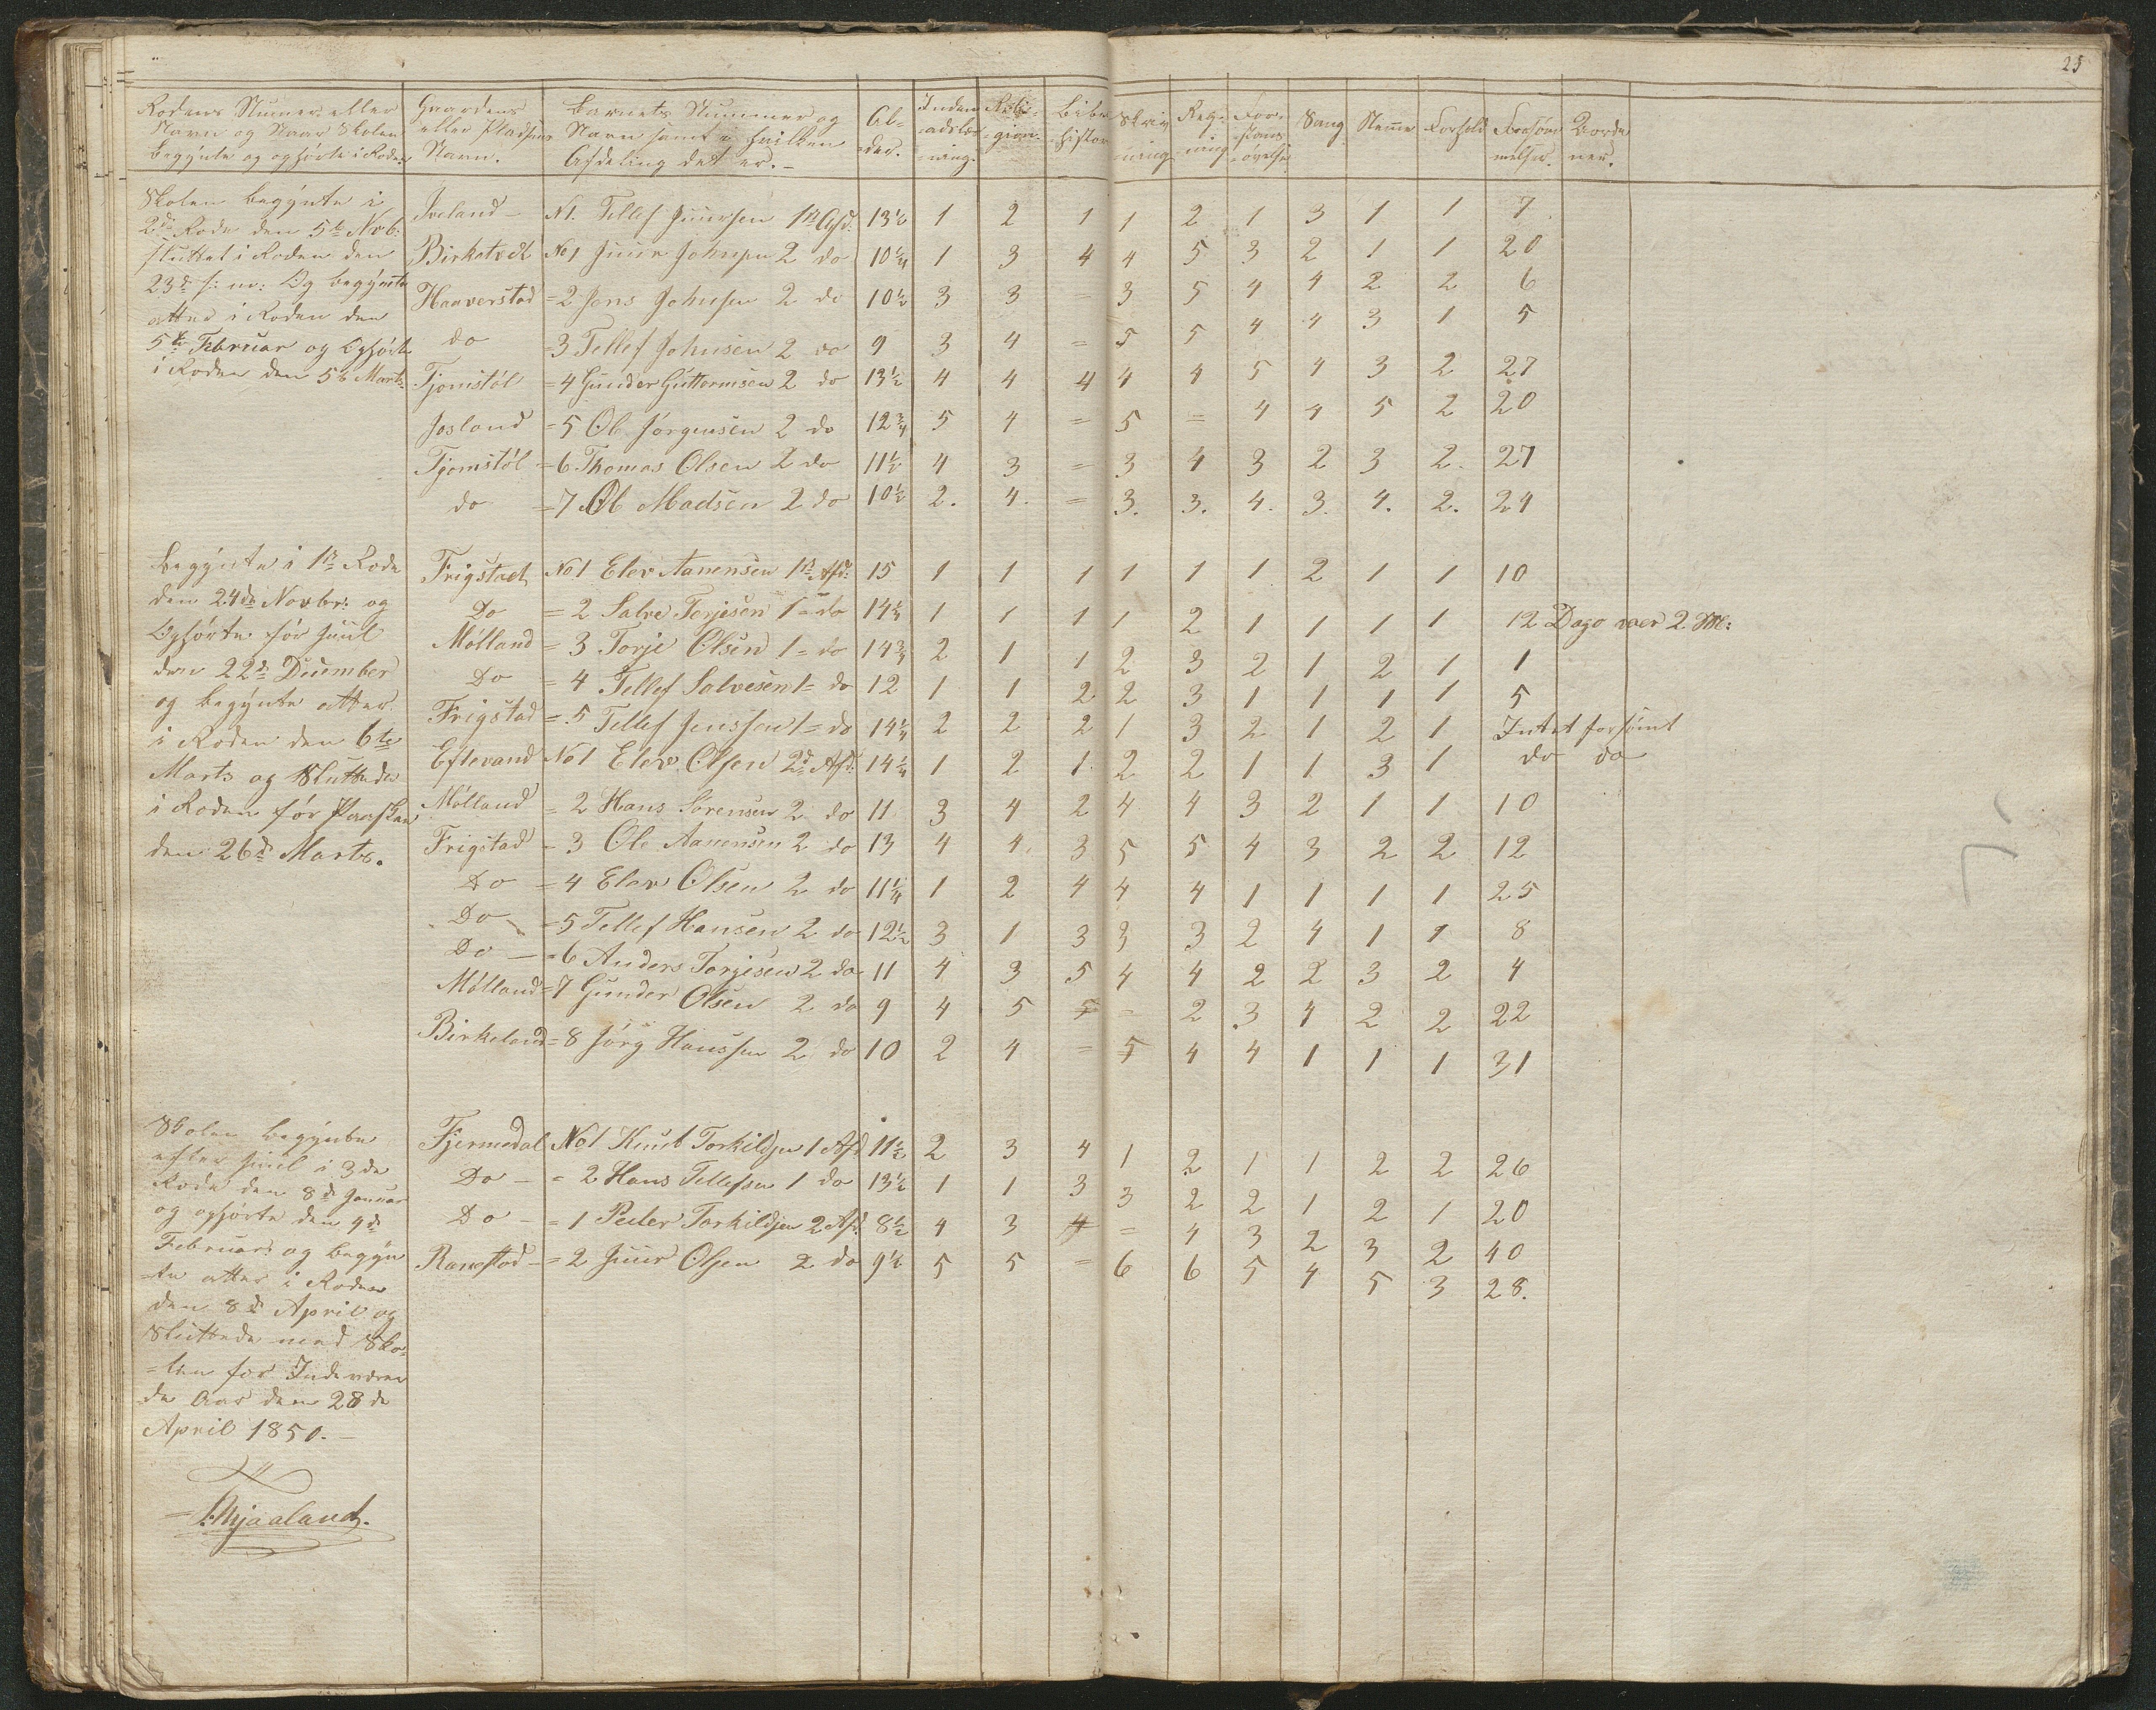 25
Rodens Numer eller Navn og Naar Skolen begyndte og ophørte i Roden | Gaardens eller Pladsens Navn. | Barnets Nummer og Navn samt i hvilken Afdeling det er. | Al-der. | Inden-adslæs-ning. | Reli-gion. | Bibel-histor | Skriv-ning | Reg-ning | For-stans-øvelse | Sang | Nemme | Forhold | Forsøm-melser. |
Skolen begyndte i
2den Rode den 5te Novb:
sluttet i Roden den
23de s: m: Og begyndte
atter i Roden den
5te Februar og Ophørte
i Roden den 5te Marts.
Iveland - No 1. Tellef Juursen 1ste Afd: 13½ 1 2 1 1 2 1 3 1 1 7
Birketvedt No 1 Juur Johnsen 2 do 10¼ 1 3 4 4 5 3 2 1 1 20
Haaverstad = 2 Jens Johnsen 2 do 10½ 3 3 = 3 5 4 4 2 2 6
do = 3 Tellef Johnsen 2 do 9 3 4 = 5 5 4 4 3 1 5
Tjomstøl = 4 Gunder Guttormsen 2 do 13½ 4 4 4 4 4 5 4 3 2 27
Josland = 5 Ole Jørgensen 2 do 12¾ 5 4 = 5 = 4 4 5 2 20
Tjomstøl = 6 Thomas Olsen 2 do 11½ 4 3 = 3 4 3 2 3 2. 27
do = 7 Ole Madsen 2 do 10½ 2. 4. = 3. 3. 4. 3. 4. 2. 24
Begyndte i 1ste Rode
den 24de Novbr: og
Ophørte før Juul
den 22de December
og begyndte atter
i Roden den 6te
Marts og Sluttedes
i Roden før Paasken
den 26de Marts.
Frigstad No 1 Elev Aanensen 1ste Afd: 15 1 1 1 1 1 1 2 1 1 10
Do = 2 Salve Torjesen 1 = do 14¼ 1 1 1 1 2 1 1 1 1 12 Dage
Mølland = 3 Torje Olsen 1 = do 14¾ 2 1 1 2 3 2 1 2 1 1
Do = 4 Tellef Salvesen 1 = do 12 1 1 2 2 3 1 1 1 1 5
Frigstad = 5 Tellef Jenssen 1 = do 14¼ 2 2 2 1 3 2 1 2 1 Intet forsømt
Eftevand No 1 Elev Olsen 2den Afd: 14¼ 1 2 1 2 2 1 1 3 1 do do
Mølland = 2 Hans Sørensen 2 do 11 3 4 2 4 4 3 2 1 1 10
Frigstad = 3 Ole Aanensen 2 do 13 4 4 3 5 5 4 3 2 2 12
Do = 4 Elev Olsen 2 do 11¼ 1 2 4 4 4 1 1 1 1 25
Do = 5 Tellef Hansen 2 do 12½ 3 1 3 3 3 2 4 1 1 8
Do = 6 Anders Torjesen 2 do 11 4 3 5 4 4 2 2 3 2 4
Mølland = 7 Gunder Olsen 2 do 9 4 5 = 2 3 4 2 2 22
Birkeland = 8 Jørg Hanssen 2 do 10 2 4 = 5 4 4 1 1 1 31
Skolen begyndte
efter Juul i 3de
Rode den 8de Januar
og ophørte den 4de
Februar: og begyn
=te atter i Roden
den 8de April og
Sluttede med Sko=
=len for Indeværen
de Aar den 28de
April 1850.
Fjermedal No 1 Knut Torkildsen 1 Afd 11½ 2 3 4 1 2 1 1 2 2 26
Do - = 2 Hans Tellefsen 1 do 13½ 1 1 3 3 2 2 1 2 1 20
Do - = 1 Peder Torkildsen 2 Afd: 8½ 4 3 = 4 3 2 3 2 40
Ramstad - = 2 Juur Olsen 2 do 9½ 5 5 = 6 6 5 4 5 3 28.
Mjaaland.